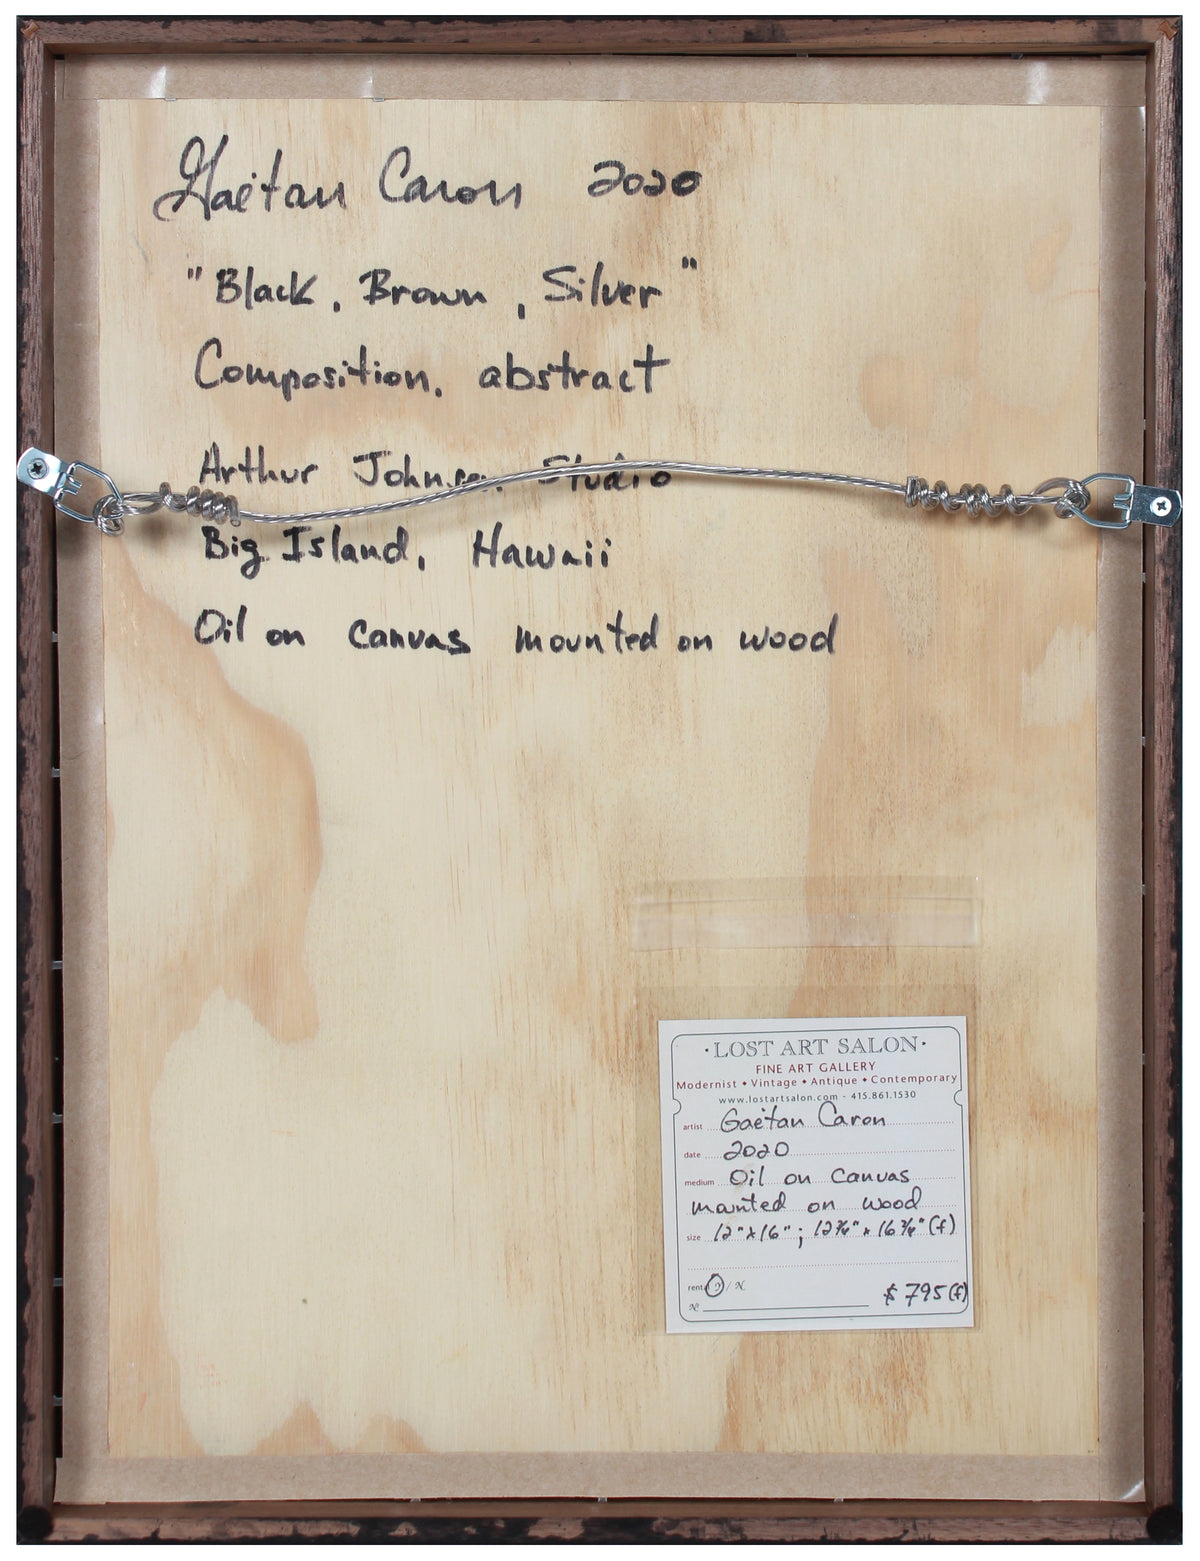 Gaëtan Caron 2020
"Black, Brown, Silver"
Composition, abstract
Arthur Johnsen Studio
Big Island, Hawaii
Oil on canvas mounted on wood
·LOST ART SALON·
FINE ART GALLERY
Modernist • Vintage • Antique • Contemporary
www.lostartsalon.com - 415.861.1530
artist Gaëtan Caron
date 2020
medium Oil on canvas
mounted on wood
size 12"x16"; 12¾"x16¾"(f)
rental Y / N $795(f)
Nº